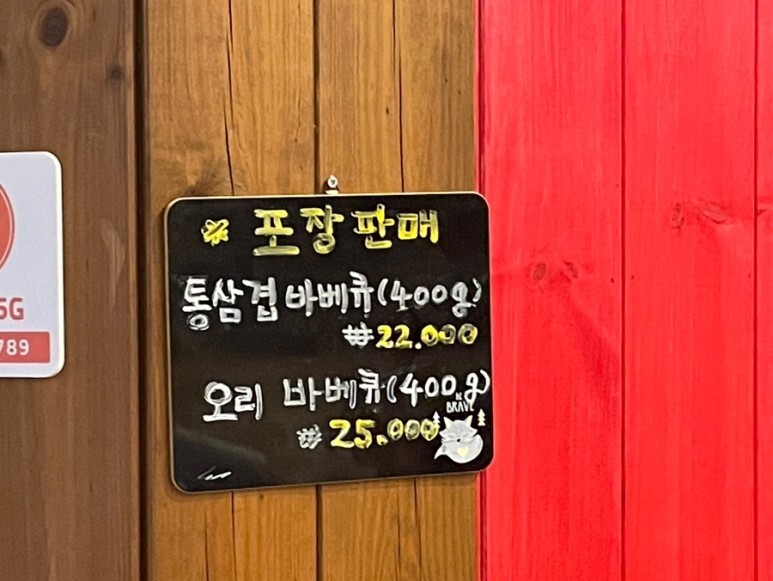 포장판매
통삼겹 바베큐(400g)
₩22.000
오리 바베큐(400g)
₩25.000
BE
BRAVE
5G
789